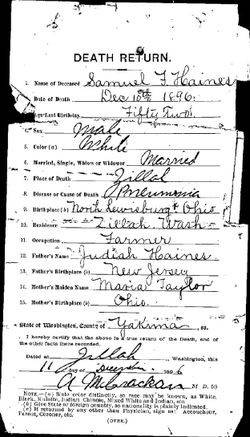 DEATH RETURN.
1. Name of Deceased Samuel F Haines
2. Date of Death Dec 10th 1896.
3. Age Last Birthday Fifty Two
4. Sex Male
5. Color (a) White
6. Married, Single, Widow or Widower Married
7. Place of Death Zillah
8. Disease or Cause of Death Pneumonia
9. Birthplace (b) North Lewisburg Ohio
10. Residence Zillah Wash
11. Occupation Farmer
12. Father's Name Judiah Haines
13. Father's Birthplace (b) New Jersey
14. Mother's Maiden Name Maria Taylor
15. Mother's Birthplace (b) Ohio.
State of Washington, County of Yakima ss.
I hereby certify that the above is a true return of the Death, and of the other facts recorded.
Dated at Zillah Washington, this
11 day of December 1896
M. D. (c)
NOTE.—(a) State color distinctly, so race may be known, as White, Black, Mulatto, Indian, Chinese, Mixed White and Indian, etc.
(b) Give State or foreign country, so nationality is plainly indicated.
(c) If returned by any other than Physician, sign as Accoucheur, Parent, Coroner, etc.
(OVER.)